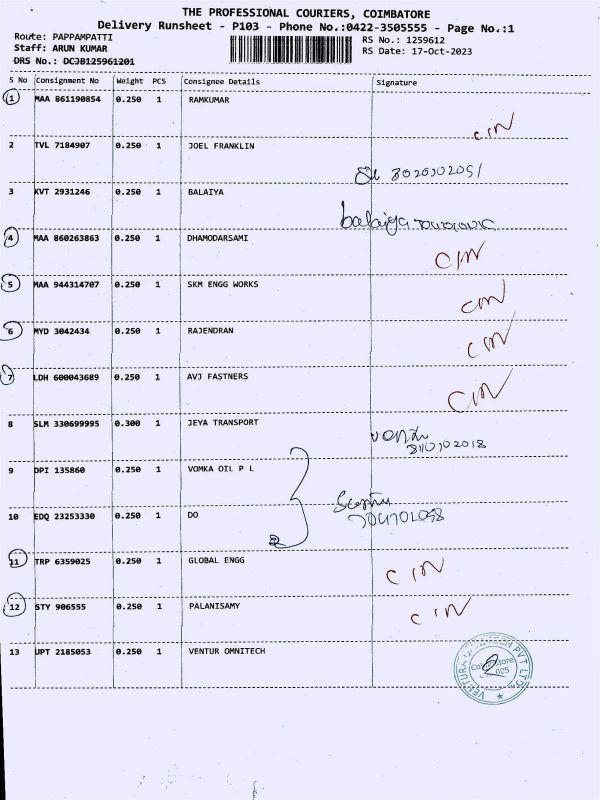 THE PROFESSIONAL COURIERS, COIMBATORE
Delivery Runsheet - P103 - Phone No.:0422-3505555 - Page No.:1
Route: PAPPAMPATTI
RS No.: 1259612
Staff: ARUN KUMAR
RS Date: 17-Oct-2023
DRS No.: DCJB125961201
S No Consignment No Weight PCS Consignee Details Signature
1 MAA 861190854 0.250 1 RAMKUMAR
CIN
2 TVL 7184907 0.250 1 JOEL FRANKLIN
3 KVT 2931246 0.250 1 BALAIYA
balaiya
4 MAA 860263863 0.250 1 DHAMODARSAMI
CIN
5 MAA 944314707 0.250 1 SKM ENGG WORKS
CIN
6 MYD 3042434 0.250 1 RAJENDRAN
CIN
7 LDH 600043689 0.250 1 AVJ FASTNERS
CIN
8 SLM 330699995 0.300 1 JEYA TRANSPORT
9 DPI 135860 0.250 1 VOMKA OIL P L
10 EDQ 23253330 0.250 1 DO
11 TRP 6359025 0.250 1 GLOBAL ENGG
CIN
12 STY 906555 0.250 1 PALANISAMY
CIN
13 UPT 2185053 0.250 1 VENTUR OMNITECH